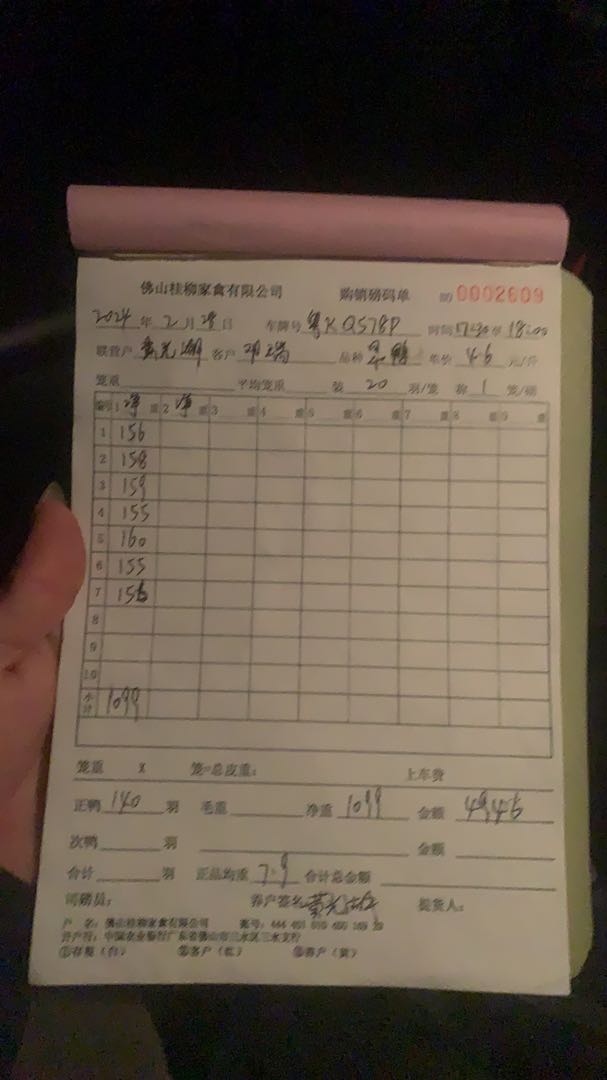 佛山桂柳家禽有限公司 购销磅码单 0002609
2024 年 2 月 28 日 车牌号 粤K QS78P 时间 17:30 至 18:00
联营户 黄光潮 客户 邓瑞 品种 鸭 单价 4.6 元/斤
笼重 平均笼重 装 20 羽/笼 称 1 笼/磅
编号 1 净 重 2 净 重 3 重 4 重 5 重 6 重 7 重 8 重 9 重
1 156
2 158
3 159
4 155
5 160
6 155
7 156
8
9
10
小计 1099
笼重 X 笼=总皮重: 上车费
正鸭 140 羽 毛重 净重 1099 金额
次鸭 羽 金额
合计 羽 正品均重 7.9 合计总金额
司磅员: 养户签名 黄光 提货人:
户 名: 佛山桂柳家禽有限公司 账号:
开户行: 中国农业银行广东省佛山市三水区三水支行
①存根(白) ②客户(红) ③养户(黄)